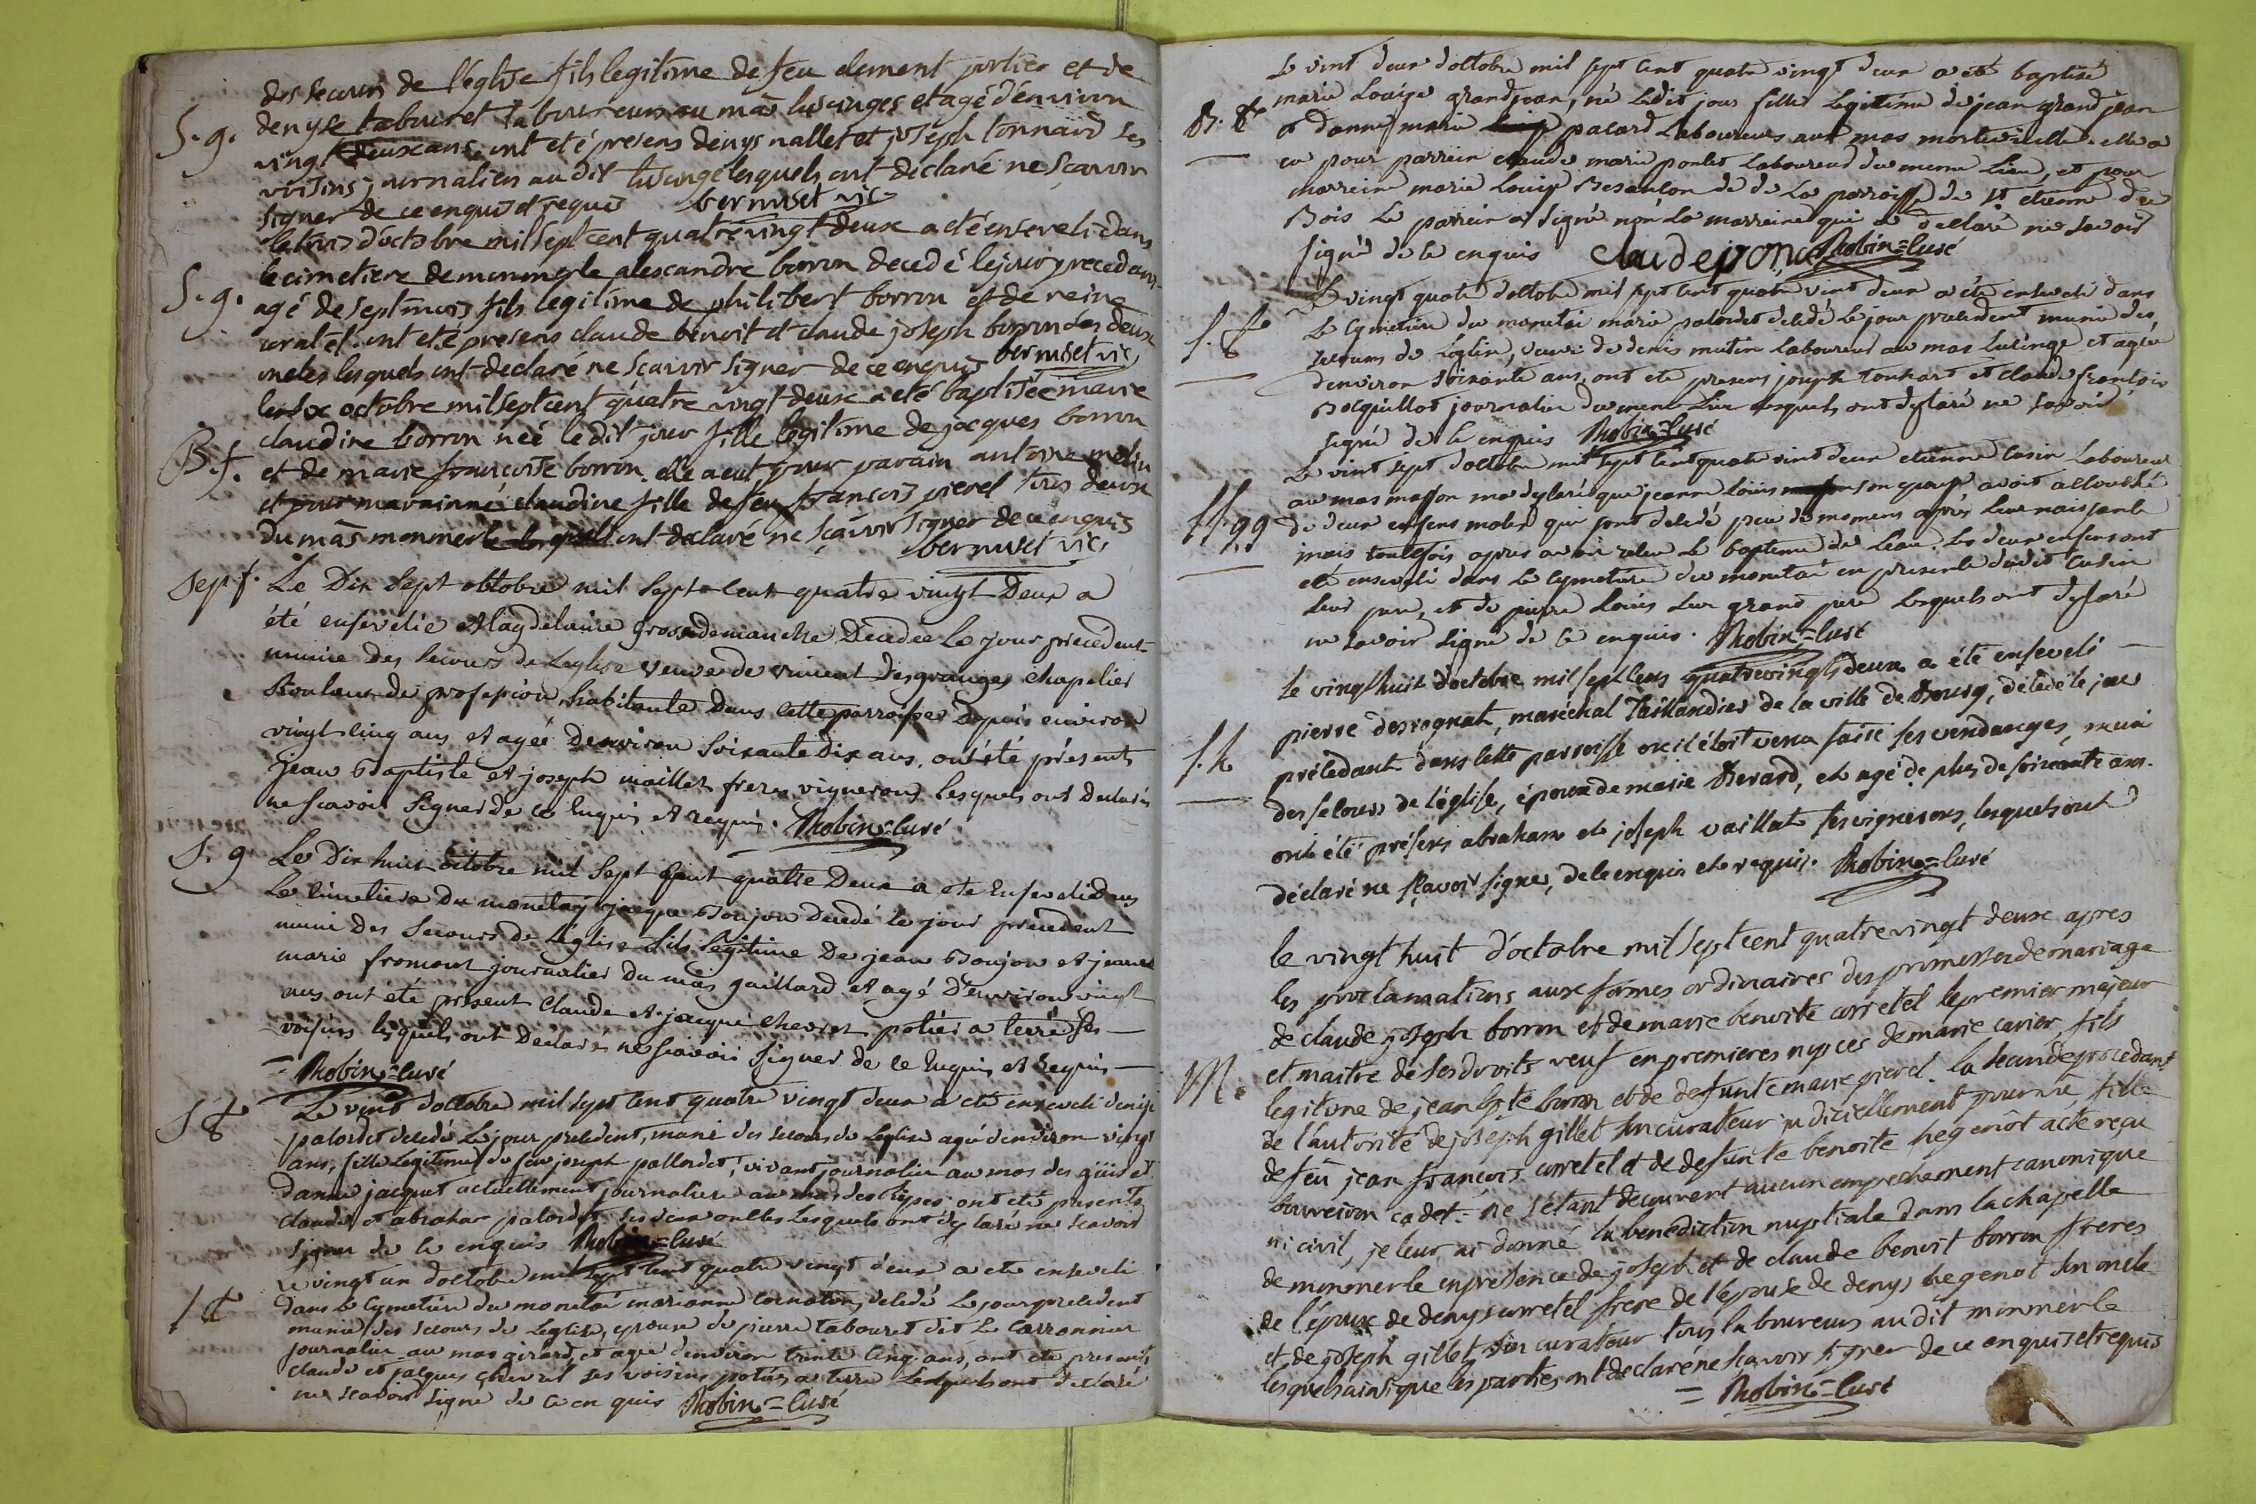 des secours de l'église fils legitime de feu clement portier et de
S. g. denyse tabouret laboureur au mas lusinges et agé d'environ
vingt deux ans, ont eté presens denys nallet et joseph tonnaird ses
voisins journaliers audit lusinge lesquels ont déclaré ne sçavoir
signer de ce enquis et requis bernuset vic
le trois d'octobre mil sept cent quatre vingt deux a eté enseveli dans
le cimetiere de monmerle alexandre borron decedé le jour precedent
S. g. agé de sept mois fils legitime de philibert borron et de reine
corretel. ont eté presens claude benoit et claude joseph borron ses deux
oncles lesquels ont declaré ne sçavoir signer de ce enquis bernuset vic
le six octobre mil sept cent quatre vingt deux a eté baptisée marie
claudine borron neé le dit jour fille legitime de jacques borron
B. f. et de marie françoise borron. elle a eut pour parain antoine
et pour marainne claudine fille de feu françois pierel tous deux
du mas monmerle lesquels ont declaré ne sçavoir signer de ce enquis
bernuset vic
sep f. Le Dix Sept octobre mil Sept cent quatre vingt Deux a
été ensevelie Magdelaine grossedemanche Decedee Le jour precedent
munie des secours de Leglise veuve de vincent Desgranges Chapelier
Rouleur de profession habitante Dans cette parroisse Depuis environ
vingt cinq ans et agée Denviron Soixante Dix ans, ont été présents
jean Baptiste et joseph maillet freres vignerons Lesquels ont Declaré
ne Scavoir Signer de Ce Enquis et requis. Robin=Curé
S. g Le Dix huit octobre mil Sept Cent quatre Deux a ete Enseveli Dans
Le Cimetiere Du monetay jacque Boujon Decedé le jour precedent
muni des Secours de L'église fils legitime De jean Boujon et jeanne
marie fromont journalier Du mas gaillard et agé D'environ vingt
ans ont ete present Claude et jacque Chevret potier a terre Ses
voisins lesquels ont Declaré ne Scavoir Signer de Ce Enquis et Requis
= Robin=Curé
S f Le vint doctobre mil sept cent quatre vingt deux a eté enseveli denise
palordet decedé Le jour precedent, munie des secours de Leglise agé denviron vingt
ans, fille Legitime de feu joseph pallordet, vivant journalier au mas des et
danne jacquet actuellement journaliere au mas des Ripes ont eté presents
Claude et abraham palordet ses deux oncles Lesquels ont declaré ne scavoir
signer de ce enquis Robin=Curé
S f Le vingt un doctobre mil sept cent quatre vingt deux a ete enseveli
dans Le Cymetiere du monetai marianne Cornaton, decedé Le jour precedent
munie des secours de Leglise, epouse de pierre tabouret dit Le Carronnier
journalier au mas girard, et agé denviron trente Cinq ans, ont ete presents
claude et jacques chevret ses voisins potiers a terre Lesquels ont declaré
ne scavoir signé de ce en quis Robin=Curé
Le vint deux doctobre mil sept cent quatre vingt deux a eté baptisé
marie Louise grandjean, né ledit jour fille Legitime de jean grandjean
B. f & danne marie pacard Laboureurs aux mas mortevielle elle a
eu pour parrein claude marie Laboureur du meme Lieu, et pour
marreine marie Louise Besanson de de La parroisse de St etienne du
Bois Le parrein a signé non La marreine qui a declaré ne savoir
signé de ce enquis Claude Robin=Curé
Le vingt quatre doctobre mil sept cent quatre vint deux a été enseveli dans
S. f Le Cymetiere du monetai marie palordet decedé Le jour precedent munie des
secours de Leglise, veuve de denis mutin laboureur au mas luzinge et agée
denviron soixante ans, ont ete presens joseph tonhart et claude francois
Bocquillot journalier du meme Lieu Lesquels ont declaré ne savoir
signé de ce enquis Robin=Curé
Le vint sept doctobre mil sept cent quatre vint deux etienne Cusin Laboureur
au mas masson ma declaré que jeanne Louis son epouse avoit accouché
ss. gg de deux enfens males qui sont decedé peu de momens après leur naissance
mais toutefois apres avoir recu Le bapteme de Leau. les deux enfens ont
eté enseveli dans Le Cymetiere du monetai en presence dudit Cusin
leur pere, et de pierre Louis leur grand pere Lesquels ont declaré
ne savoir signe de ce enquis. Robin=Curé
le vingt huit doctobre mil sept cens quatrevingts deux a été enseveli
pierre desvignat, maréchal Taillandier de la ville de Bourg, décédé le jour
S. h précédant dans cette parroisse où il étoit venu faire ses vendanges, muni
des secours de l'église, époux de marie Berard, et agé de plus de soixante ans.
ont été présens abraham et joseph vaillat ses vignerons, lesquels ont
déclaré ne sçavoir signer, de ce enquis et requis. Robin=Curé
le vingt huit d'octobre mil sept cent quatre vingt deux apres
les proclamations aux formes ordinaires des promesses de mariage
de claude joseph borron et de marie benoite corretel le premier majeur
M. et maitre de ses droits veuf en premieres nopces de marie cavier, fils
legitime de jean bpte borron et de defunte marie pierel. la seconde procedante
de l'autorité de joseph gillet son curateur judiciellement pourvu, fille
de feu jean françois corretel et de defunte benoite hegenot acte reçu
bouveiron cadet. ne s'étant decouvert aucun empechement canonique
ni civil, je leur ai donné la benediction nuptiale dans la chapelle
de monmerle en presence de joseph et de claude benoit borron freres
de l'époux de denys corretel frere de l'épouse de denys hegenot son oncle
et de joseph gillet son curateur tous laboureurs audit monmerle
lesquels ainsi que les parties ont declaré ne sçavoir signer de ce enquis et requis
= Robin=Curé